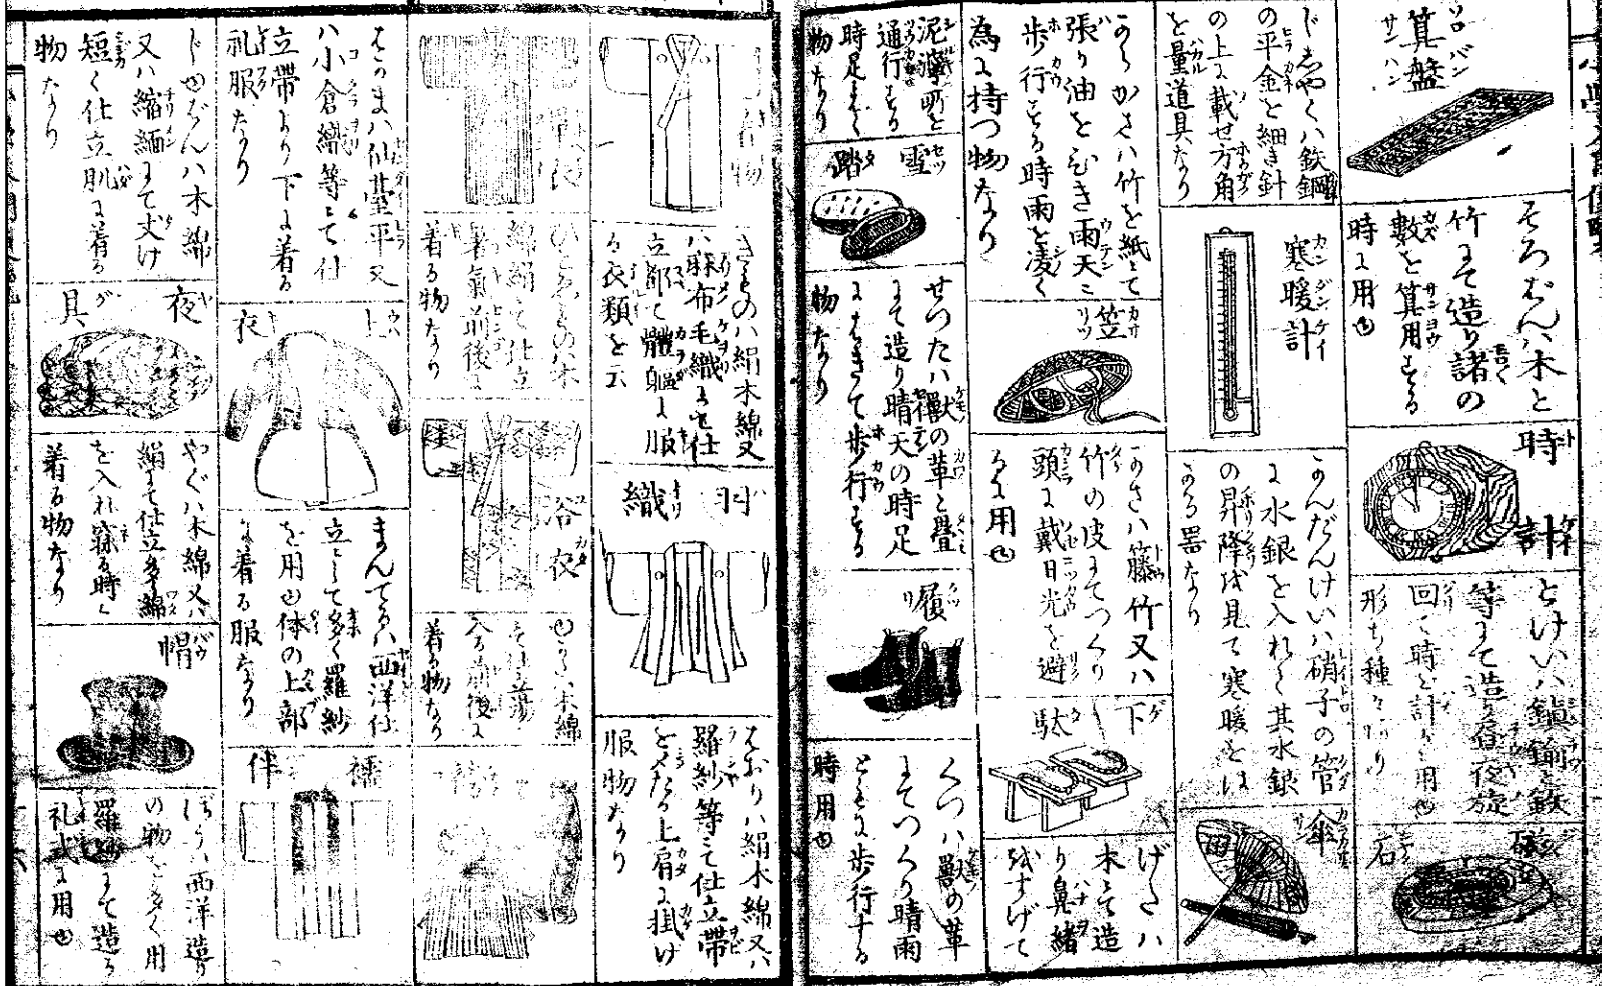 算盤
そろばんハ木と
竹にて造り諸の
數を算用する
時に用ゆ
時計
とけいハ鍮鉐と鉄
等にて造り昼夜旋
回し時を計るに用ゆ
形ち種々あり
磁石
じしやくハ鉄鋼
の平金と細き針
の上に載せ方角
を量道具なり
寒暖計
かんだんけいハ硝子の管
に水銀を入れて其水銀
の昇降を見て寒暖をは
かる器なり
傘
からかさハ竹を紙にて
張り油をひき雨天に
歩行する時雨を凌く
為に持つ物なり
笠
かさハ籐竹又ハ
竹の皮にてつくり
頭に戴日光を避
るに用ゆ
下駄
げたハ
木にて造
り鼻緒
をすげて
泥濘町を
通行する
時足にはく
物なり
雪踏
せつたハ獸の革と疊
にて造り晴天の時足
にはきて歩行する
物なり
履
くつハ獸の革
にてつくり晴雨
ともに歩行する
時用ゆ
着物
きものハ絹木綿又
ハ麻布毛織にて仕
立都て體軀に服
る衣類を云
羽織
はおりハ絹木綿又ハ
羅紗等にて仕立帶
をしたる上肩に掛け
服物なり
單衣
ひとへものハ木
綿絹にて仕立
暑氣前後に
着る物なり
浴衣
ゆかたハ木綿
にて仕立湯に
入る前後に
着る物なり
はかまハ仙臺平又
ハ小倉織等にて仕
立帶より下に着る
礼服なり
上衣
まんてるハ西洋仕
立にして多く羅紗
を用ゆ体の上部
に着る服なり
襦伴
じゆばんハ木綿
又ハ縮緬にて丈け
短く仕立肌に着る
物なり
夜具
やぐハ木綿又ハ
絹にて仕立多く綿
を入れ寐る時に
着る物なり
帽
ぼうハ西洋造り
の物を多く用
羅紗にて造る
礼式に用ゆ